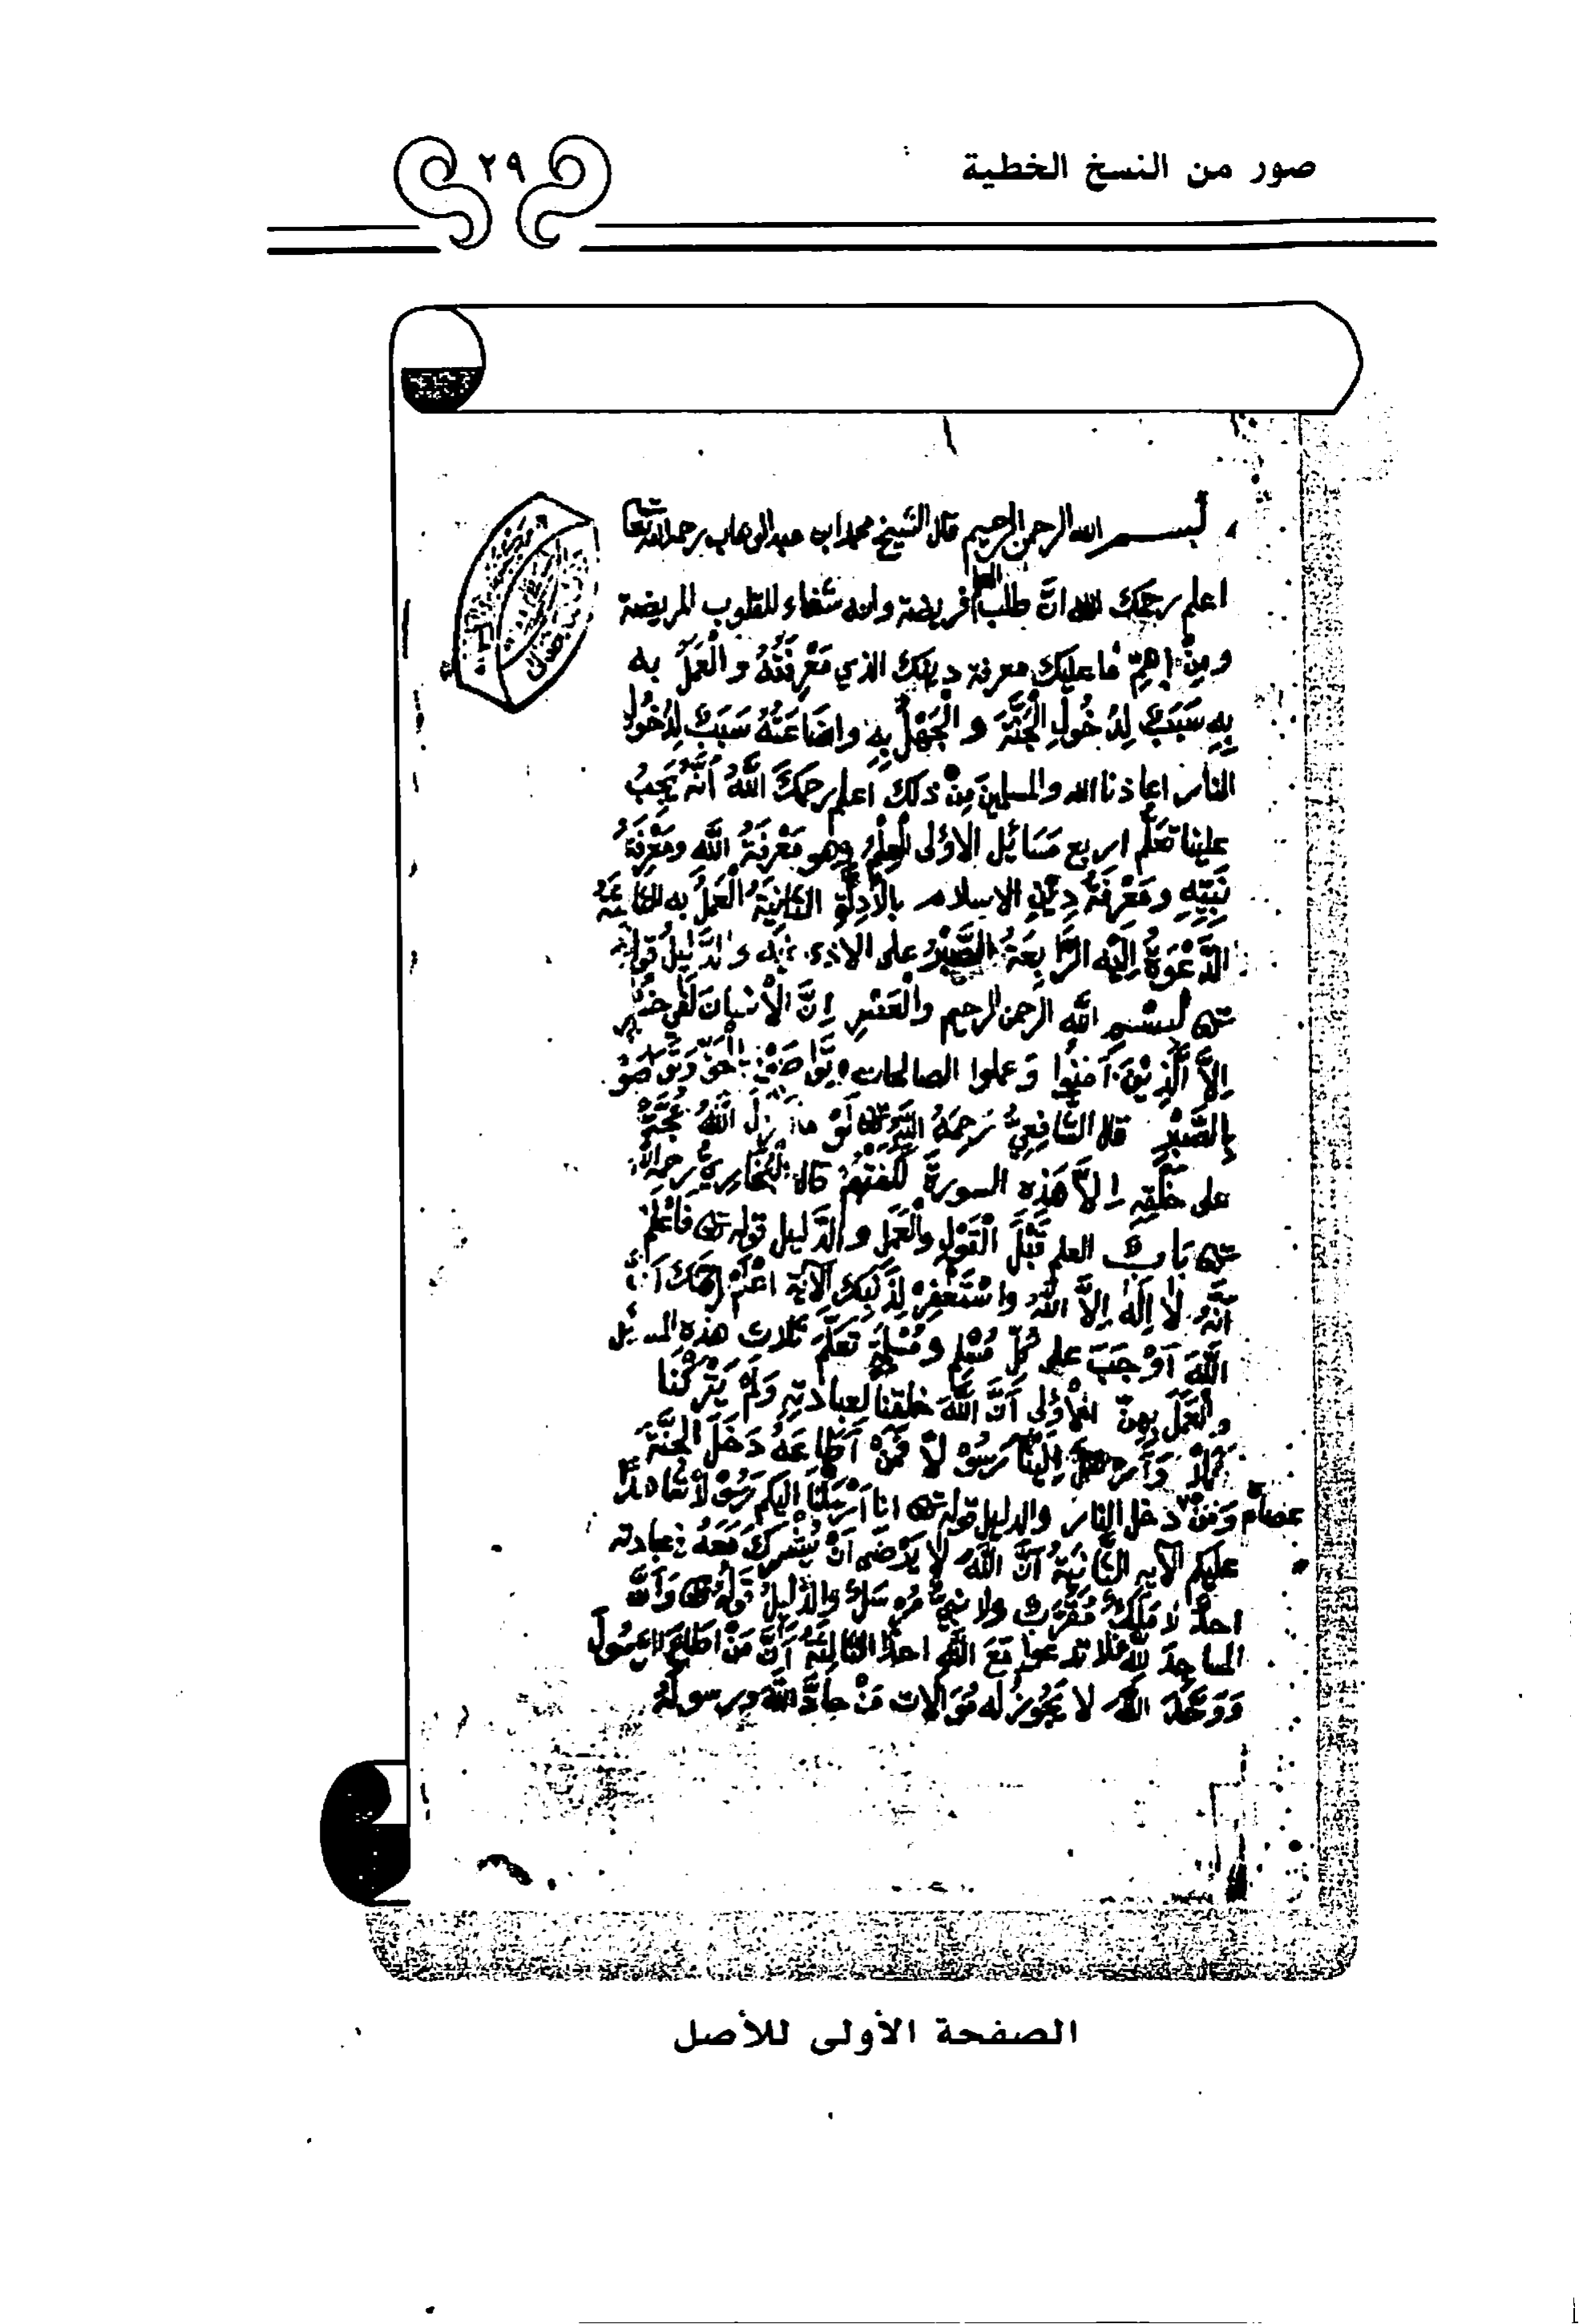 صور من النسخ الخطية
٢٩
بسم الله الرحمن الرحيم قال الشيخ محمد ابن عبد الوهاب رحمه الله تعا
اعلم رحمك الله انَّ طلب العلم فريضة وانه شفاء للقلوب المريضة
ومِنْ اهمِّ ما عليك معرفة دينك الذي مَعْرِفَتُهُ والْعَمَلُ به
بِهِ سَبَبٌ لِدُخُولِ الْجَنَّةِ والْجَهْلُ بِهِ واضَاعَتُهُ سَبَبٌ لِدُخُولِ
النار اعاذنا الله والمسلمين مِنْ ذلك اعلم رحمكَ اللَّهُ أنَّهُ يَجِبُ
علينا تعَلُّم اربع مَسَائِل الاؤلى الْعِلْمُ وهو مَعْرِفَةُ اللَّهِ ومَعْرِفَةُ
نَبِيِّهِ ومَعْرِفَةُ دِيْنِ الاسلام بالأَدِلَّةِ الثَّانِيَةُ الْعَمَلُ به الثالثة
الدَّعْوَةُ إليْهِ الرَّابِعَةُ الصَّبْرُ على الاذى فيه والدَّلِيلُ قوله
تعالى بسْمِ اللَّهِ الرحمن الرحيم والْعَصْرِ إنَّ الْأنسَانَ لَفِي خُسْرٍ
إلاَّ الَّذِيْنَ آمَنُوا وَعملوا الصالحات وَتَوَاصَوْا بالْحَقِّ وَتَوَاصَوْ
بِالصَّبْرِ قال الشَّافِعِيُّ رَحِمَهُ اللَّهُ تعالى لَوْ ما أنزلَ اللَّهُ حُجَّةً
على خلْقِهِ إلاَّ هَذِهِ السورةَ لكَفَتْهُمْ قال الْبُخَارِيُّ رحمه الله
تعالى بَابٌ العلم قَبْلَ الْقَوْلِ والْعَمَلِ والدَّليل قوله تعالى فَاعْلَمْ
أنَّهُ لا إلَهَ إلاَّ اللَّهُ واسْتَغْفِرْ لِذَنْبِكَ الآية اعْلَمْ رحمك أنَّ
اللَّهَ أوْجَبَ على كُلِّ مُسْلِمٍ ومُسْلِمَةٍ تعَلُّمَ ثلاث هذه المسائل
والْعَمَلَ بِهِنَّ الأُوْلى أنَّ اللَّهَ خلقنا لعبادته وَلَمْ يَتْرُكْنَا
هَمَلاً وَأَرْسَلَ إلَيْنَا رَسُوْلاً فَمَنْ أطَاعَهُ دَخَلَ الْجَنَّةَ
عصاه وَمَنْ دخل النار والدليل قوله تعالى انا أرْسَلْنَا اليكم رَسُوْلاً شاهدًا
عليكم الآيه الثَّانِيَةُ أنَّ اللَّهَ لا يَرْضَى أنْ يُشْرَكَ مَعَهُ في عبادته
احدٌ لا مَلَكٌ مُقَرَّبٌ ولا نبيٌّ مُرْسَلٌ والدَّليلُ قَوْلُهُ تعالى وَأنَّ
المساجِدَ لِلَّهِ فلا تدعوا مَعَ اللَّهِ احدًا الثَّالِثَةُ أنَّ مَنْ اطَاعَ الرَّسُولَ
وَوَحَّدَ اللَّهَ لا يَجُوزُ لَهُ مُوَالات مَنْ حادَّ اللَّهَ ورسولَهُ
الصفحة الأولى للأصل